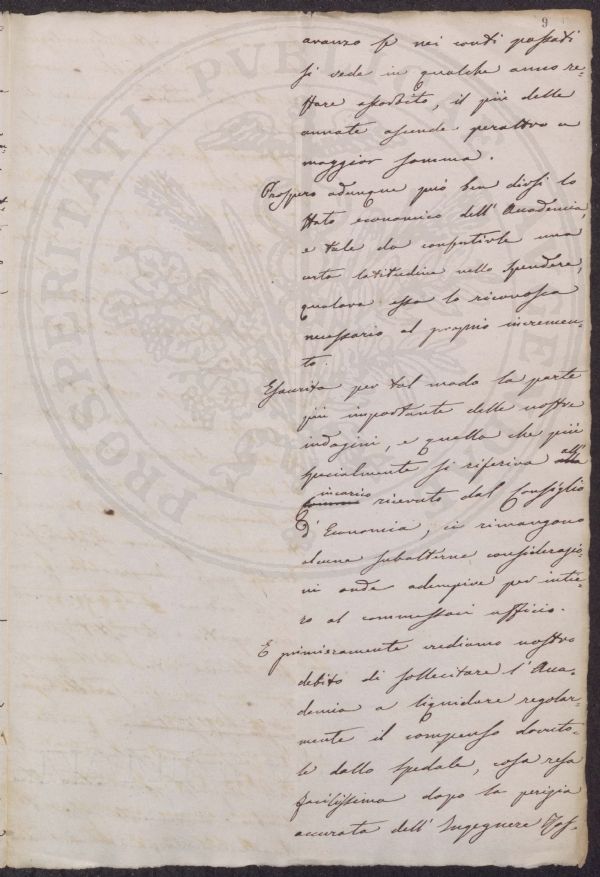 9
avanzo se nei conti passati
si vede in qualche anno re-
stare assorbito, il più delle
annate ascende peraltro a
maggior somma.
Prospero adunque può ben dirsi lo
stato economico dell'Accademia,
e tale da consentirle una
certa latitudine nello spendere,
qualora essa lo riconosca
necessario al proprio incremen-
to.
Esaurita per tal modo la parte
più importante delle nostre
indagini, e quella che più
specialmente si riferiva all'
incarico ricevuto dal Consiglio
d'Economia, ci rimangono
alcune subalterne considerazio-
ni onde adempire per inte-
ro al commessoci ufficio.
E primieramente crediamo nostro
debito di sollecitare l'Acca-
demia a liquidare regolar-
mente il compenso dovuto-
le dallo spedale, cosa resa
facilissima dopo la perizia
accurata dell'Ingegnere
PROSPERITATI PUBLICAE